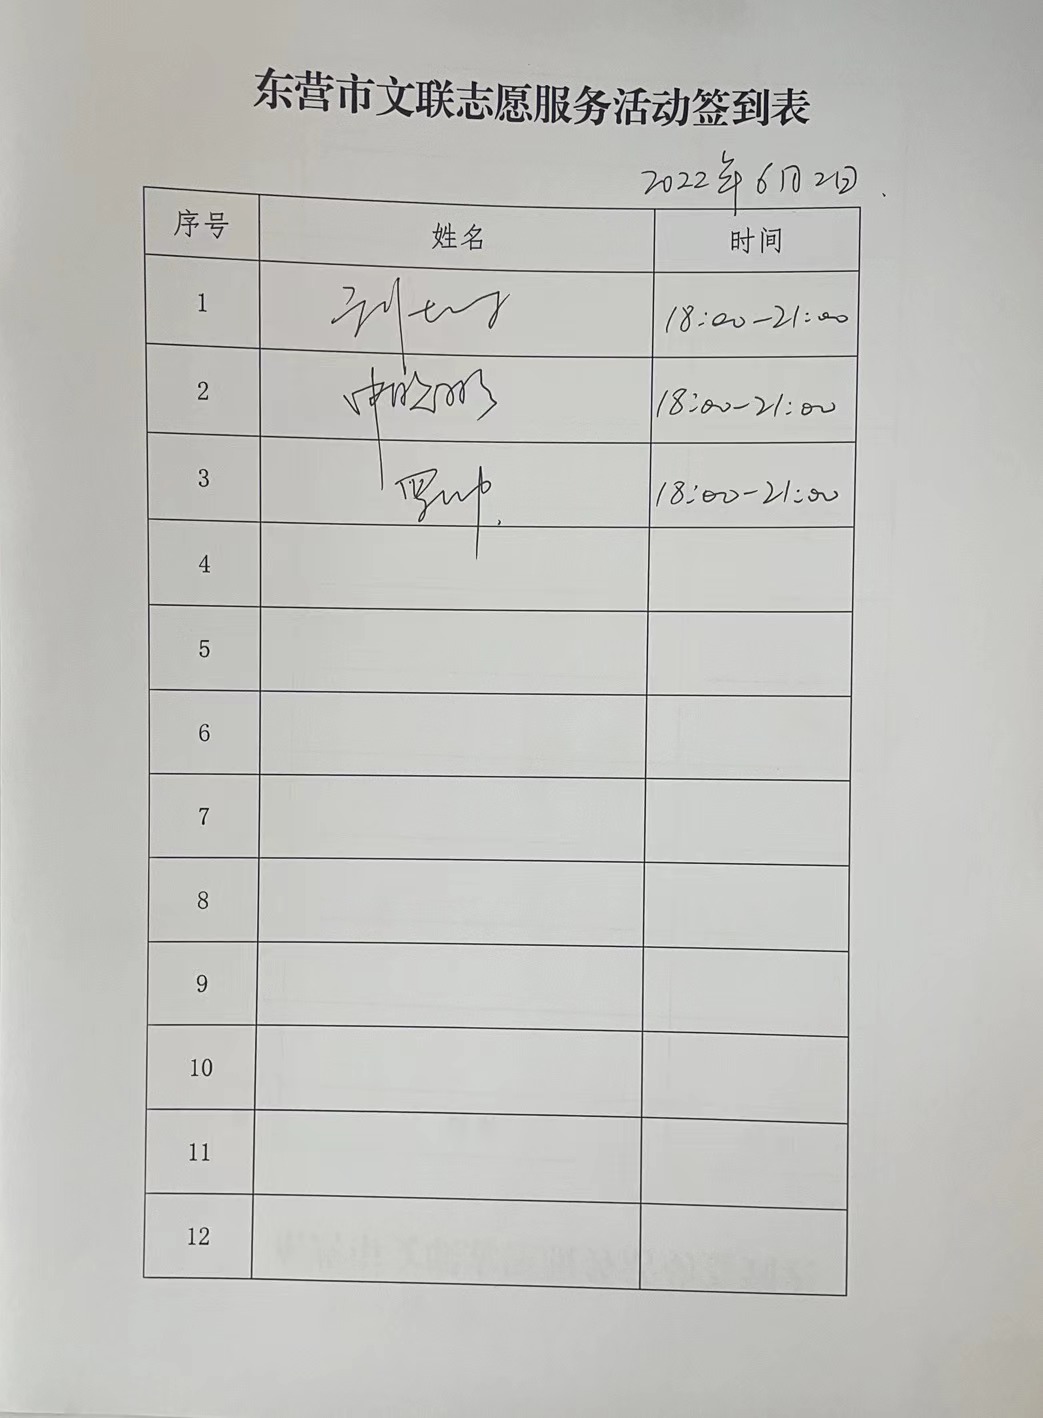 东营市文联志愿服务活动签到表
2022年6月2日
序号 姓名 时间
1 18:00-21:00
2 18:00-21:00
3 18:00-21:00
4
5
6
7
8
9
10
11
12